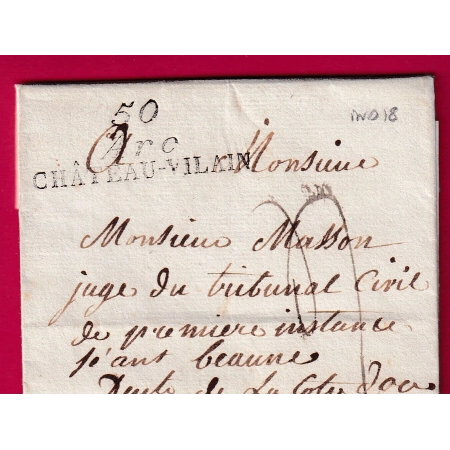 50
Arc
CHÂTEAU-VILAIN
IND 18
Monsieur
Monsieur Masson
juge du tribunal Civil
de premiere instance
séant beaune
de La Cote